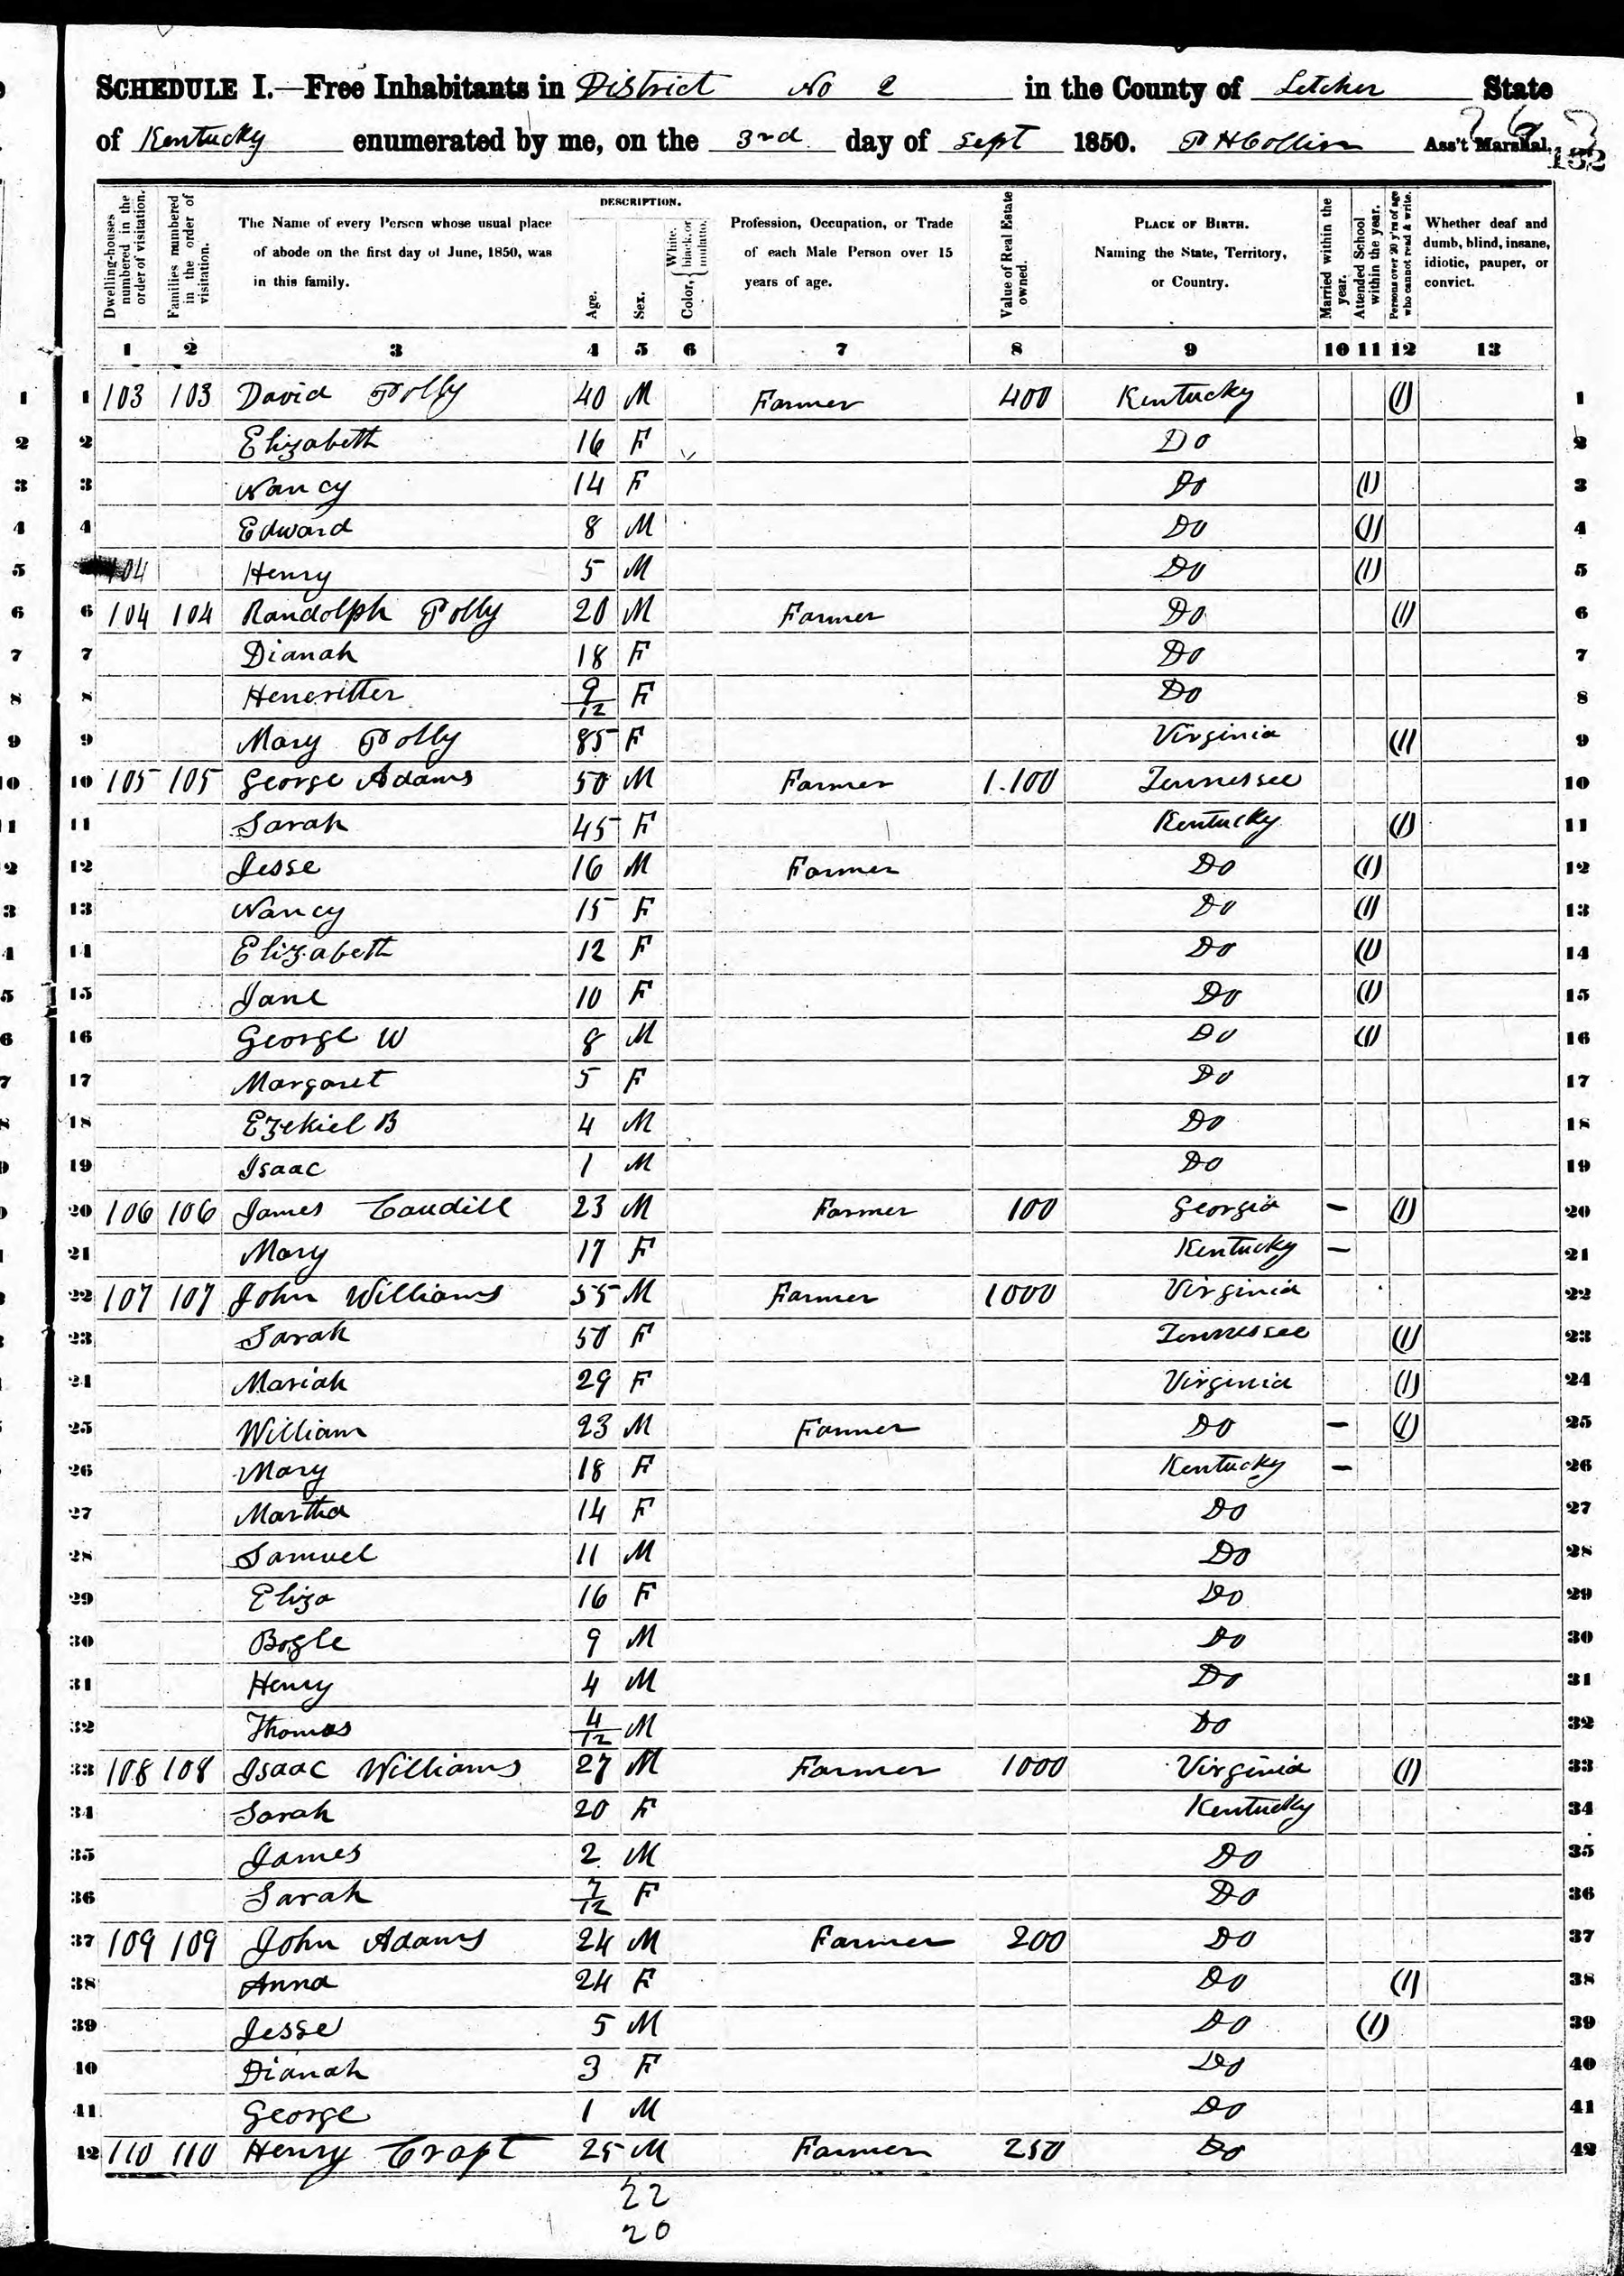 SCHEDULE I.—Free Inhabitants in District No 2 in the County of Letcher State
of Kentucky enumerated by me, on the 3rd day of Sept 1850. P H Collins Ass't Marshal.
132
Dwelling-houses numbered in the order of visitation.
Families numbered in the order of visitation.
The Name of every Person whose usual place of abode on the first day of June, 1850, was in this family.
DESCRIPTION.
Age.
Sex.
Color, White, black, or mulatto.
Profession, Occupation, or Trade of each Male Person over 15 years of age.
Value of Real Estate owned.
PLACE OF BIRTH. Naming the State, Territory, or Country.
Married within the year.
Attended School within the year.
Persons over 20 y'rs of age who cannot read & write.
Whether deaf and dumb, blind, insane, idiotic, pauper, or convict.
1 2 3 4 5 6 7 8 9 10 11 12 13
1 1 103 103 David Polly 40 M Farmer 400 Kentucky (1) 1
2 2 Elizabeth 16 F Do 2
3 3 Nancy 14 F Do (1) 3
4 4 Edward 8 M Do (1) 4
5 104 Henry 5 M Do (1) 5
6 6 104 104 Randolph Polly 20 M Farmer Do (1) 6
7 7 Dianah 18 F Do 7
8 8 Heneritter 9/12 F Do 8
9 9 Mary Polly 85 F Virginia (1) 9
10 10 105 105 George Adams 50 M Farmer 1.100 Tennessee 10
11 11 Sarah 45 F Kentucky (1) 11
2 12 Jesse 16 M Farmer Do (1) 12
3 13 Nancy 15 F Do (1) 13
4 14 Elizabeth 12 F Do (1) 14
5 15 Jane 10 F Do (1) 15
6 16 George W 8 M Do (1) 16
7 17 Margaret 5 F Do 17
8 18 Ezekiel B 4 M Do 18
19 Isaac 1 M Do 19
20 106 106 James Caudill 23 M Farmer 100 Georgia – (1) 20
21 Mary 17 F Kentucky – 21
22 107 107 John Williams 55 M Farmer 1000 Virginia 22
23 Sarah 50 F Tennessee (1) 23
24 Mariah 29 F Virginia (1) 24
25 William 23 M Farmer Do – (1) 25
26 Mary 18 F Kentucky – 26
27 Martha 14 F Do 27
28 Samuel 11 M Do 28
29 Eliza 16 F Do 29
30 Bogle 9 M Do 30
31 Henry 4 M Do 31
32 Thomas 4/12 M Do 32
33 108 108 Isaac Williams 27 M Farmer 1000 Virginia (1) 33
34 Sarah 20 F Kentucky 34
35 James 2 M Do 35
36 Sarah 7/12 F Do 36
37 109 109 John Adams 24 M Farmer 200 Do 37
38 Anna 24 F Do (1) 38
39 Jesse 5 M Do (1) 39
40 Dianah 3 F Do 40
41 George 1 M Do 41
42 110 110 Henry Craft 25 M Farmer 250 Do 42
22
20